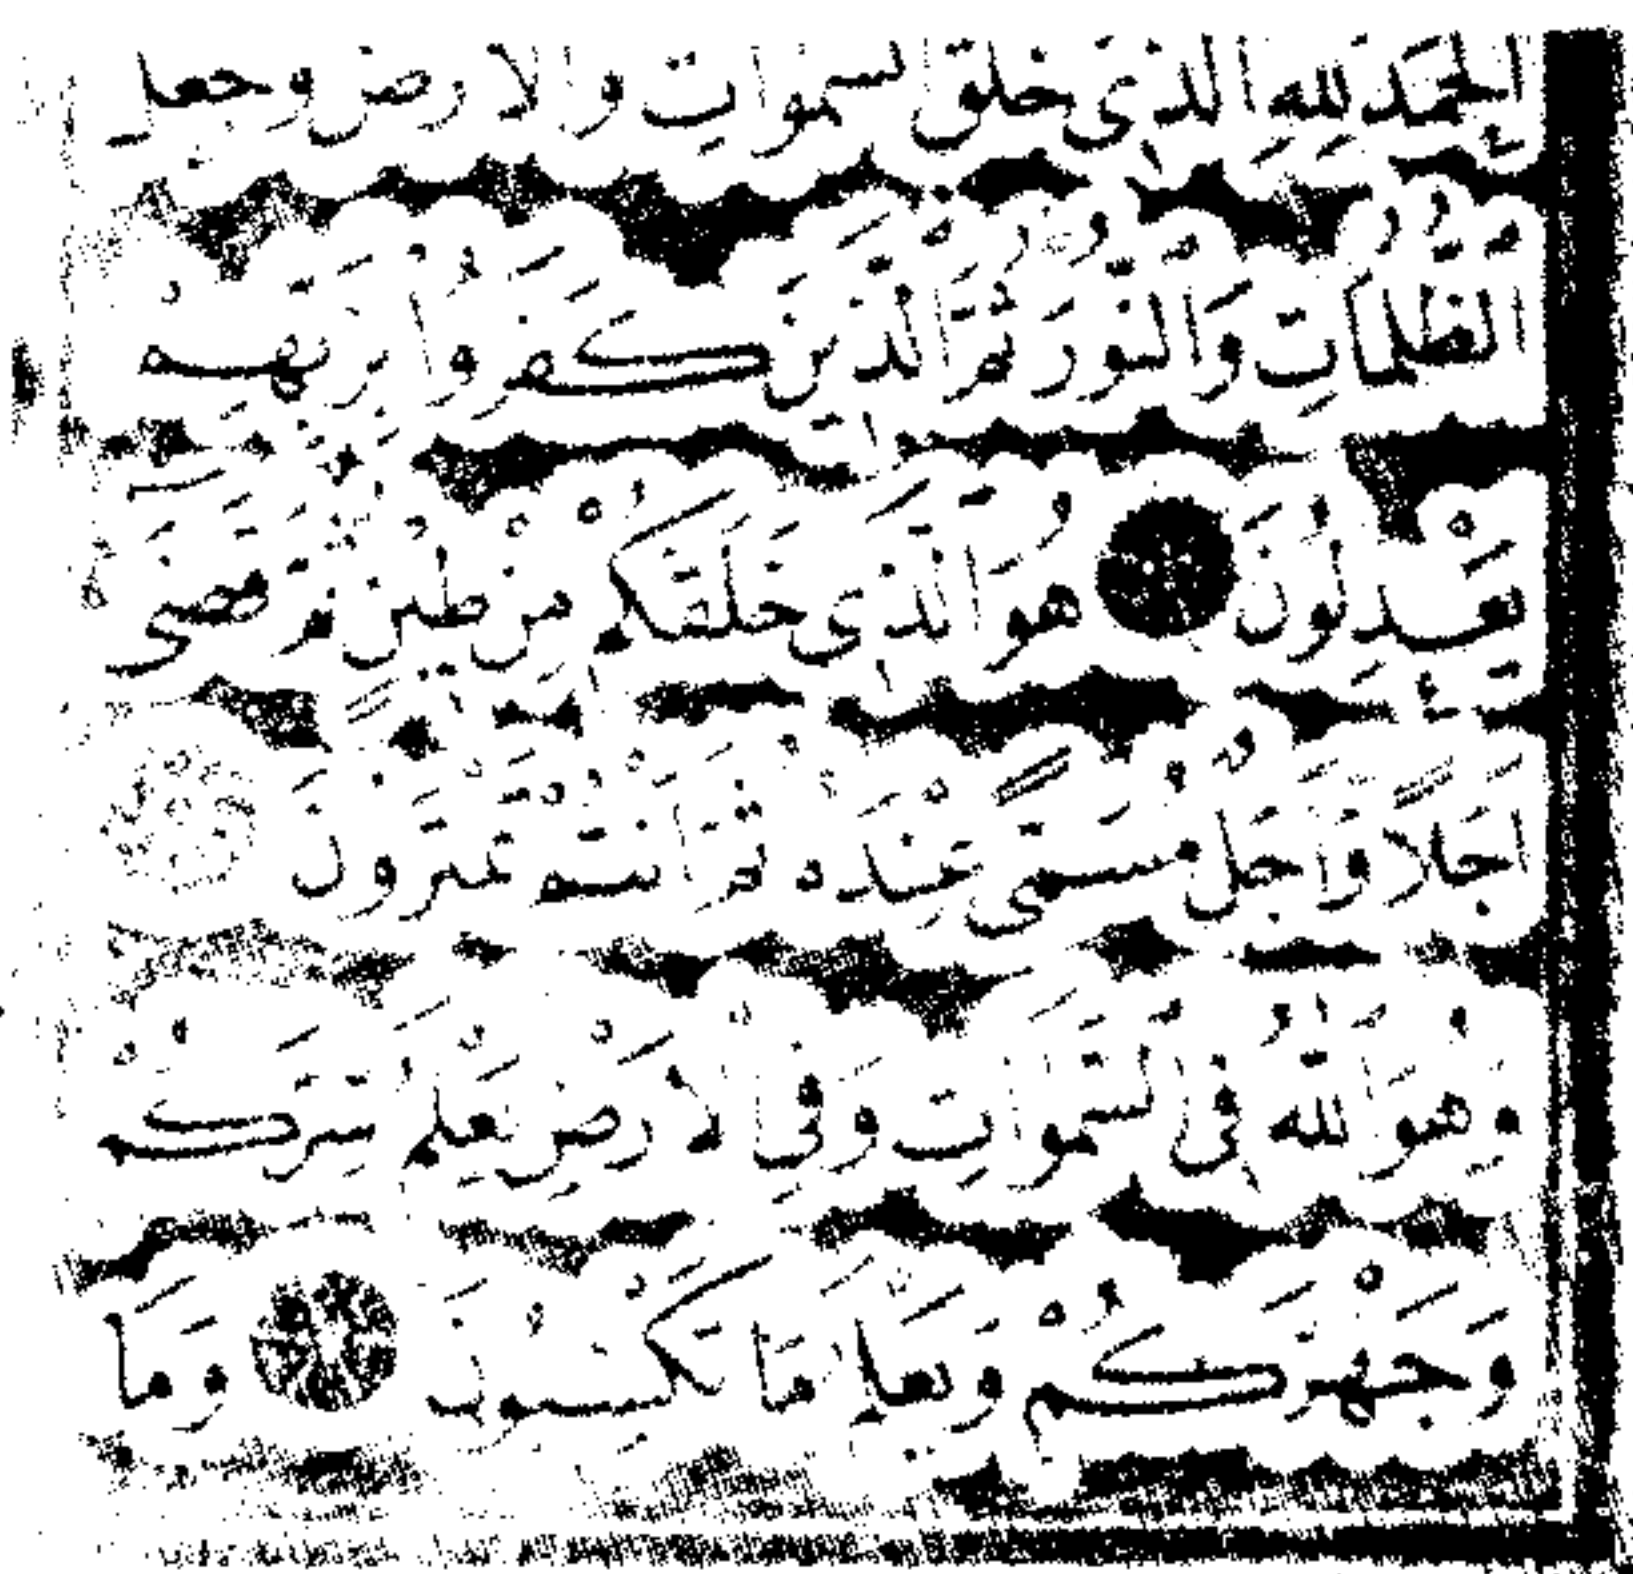 اَلْحَمْدُ لِلّٰهِ الَّذى خَلَقَ السَّمٰوَاتِ وَالْاَرْضَ وَجَعَلَ
الظُّلُمَاتِ وَالنُّورَ ثُمَّ الَّذينَ كَفَرُوا بِرَبِّهِمْ
يَعْدِلُونَ هُوَ الَّذى خَلَقَكُمْ مِنْ طينٍ ثُمَّ قَضٰى
اَجَلًا وَاَجَلٌ مُسَمًّى عِنْدَهُ ثُمَّ اَنْتُمْ تَمْتَرُونَ
وَهُوَ اللّٰهُ فِى السَّمٰوَاتِ وَفِى الْاَرْضِ يَعْلَمُ سِرَّكُمْ
وَجَهْرَكُمْ وَيَعْلَمُ مَا تَكْسِبُونَ وَمَا